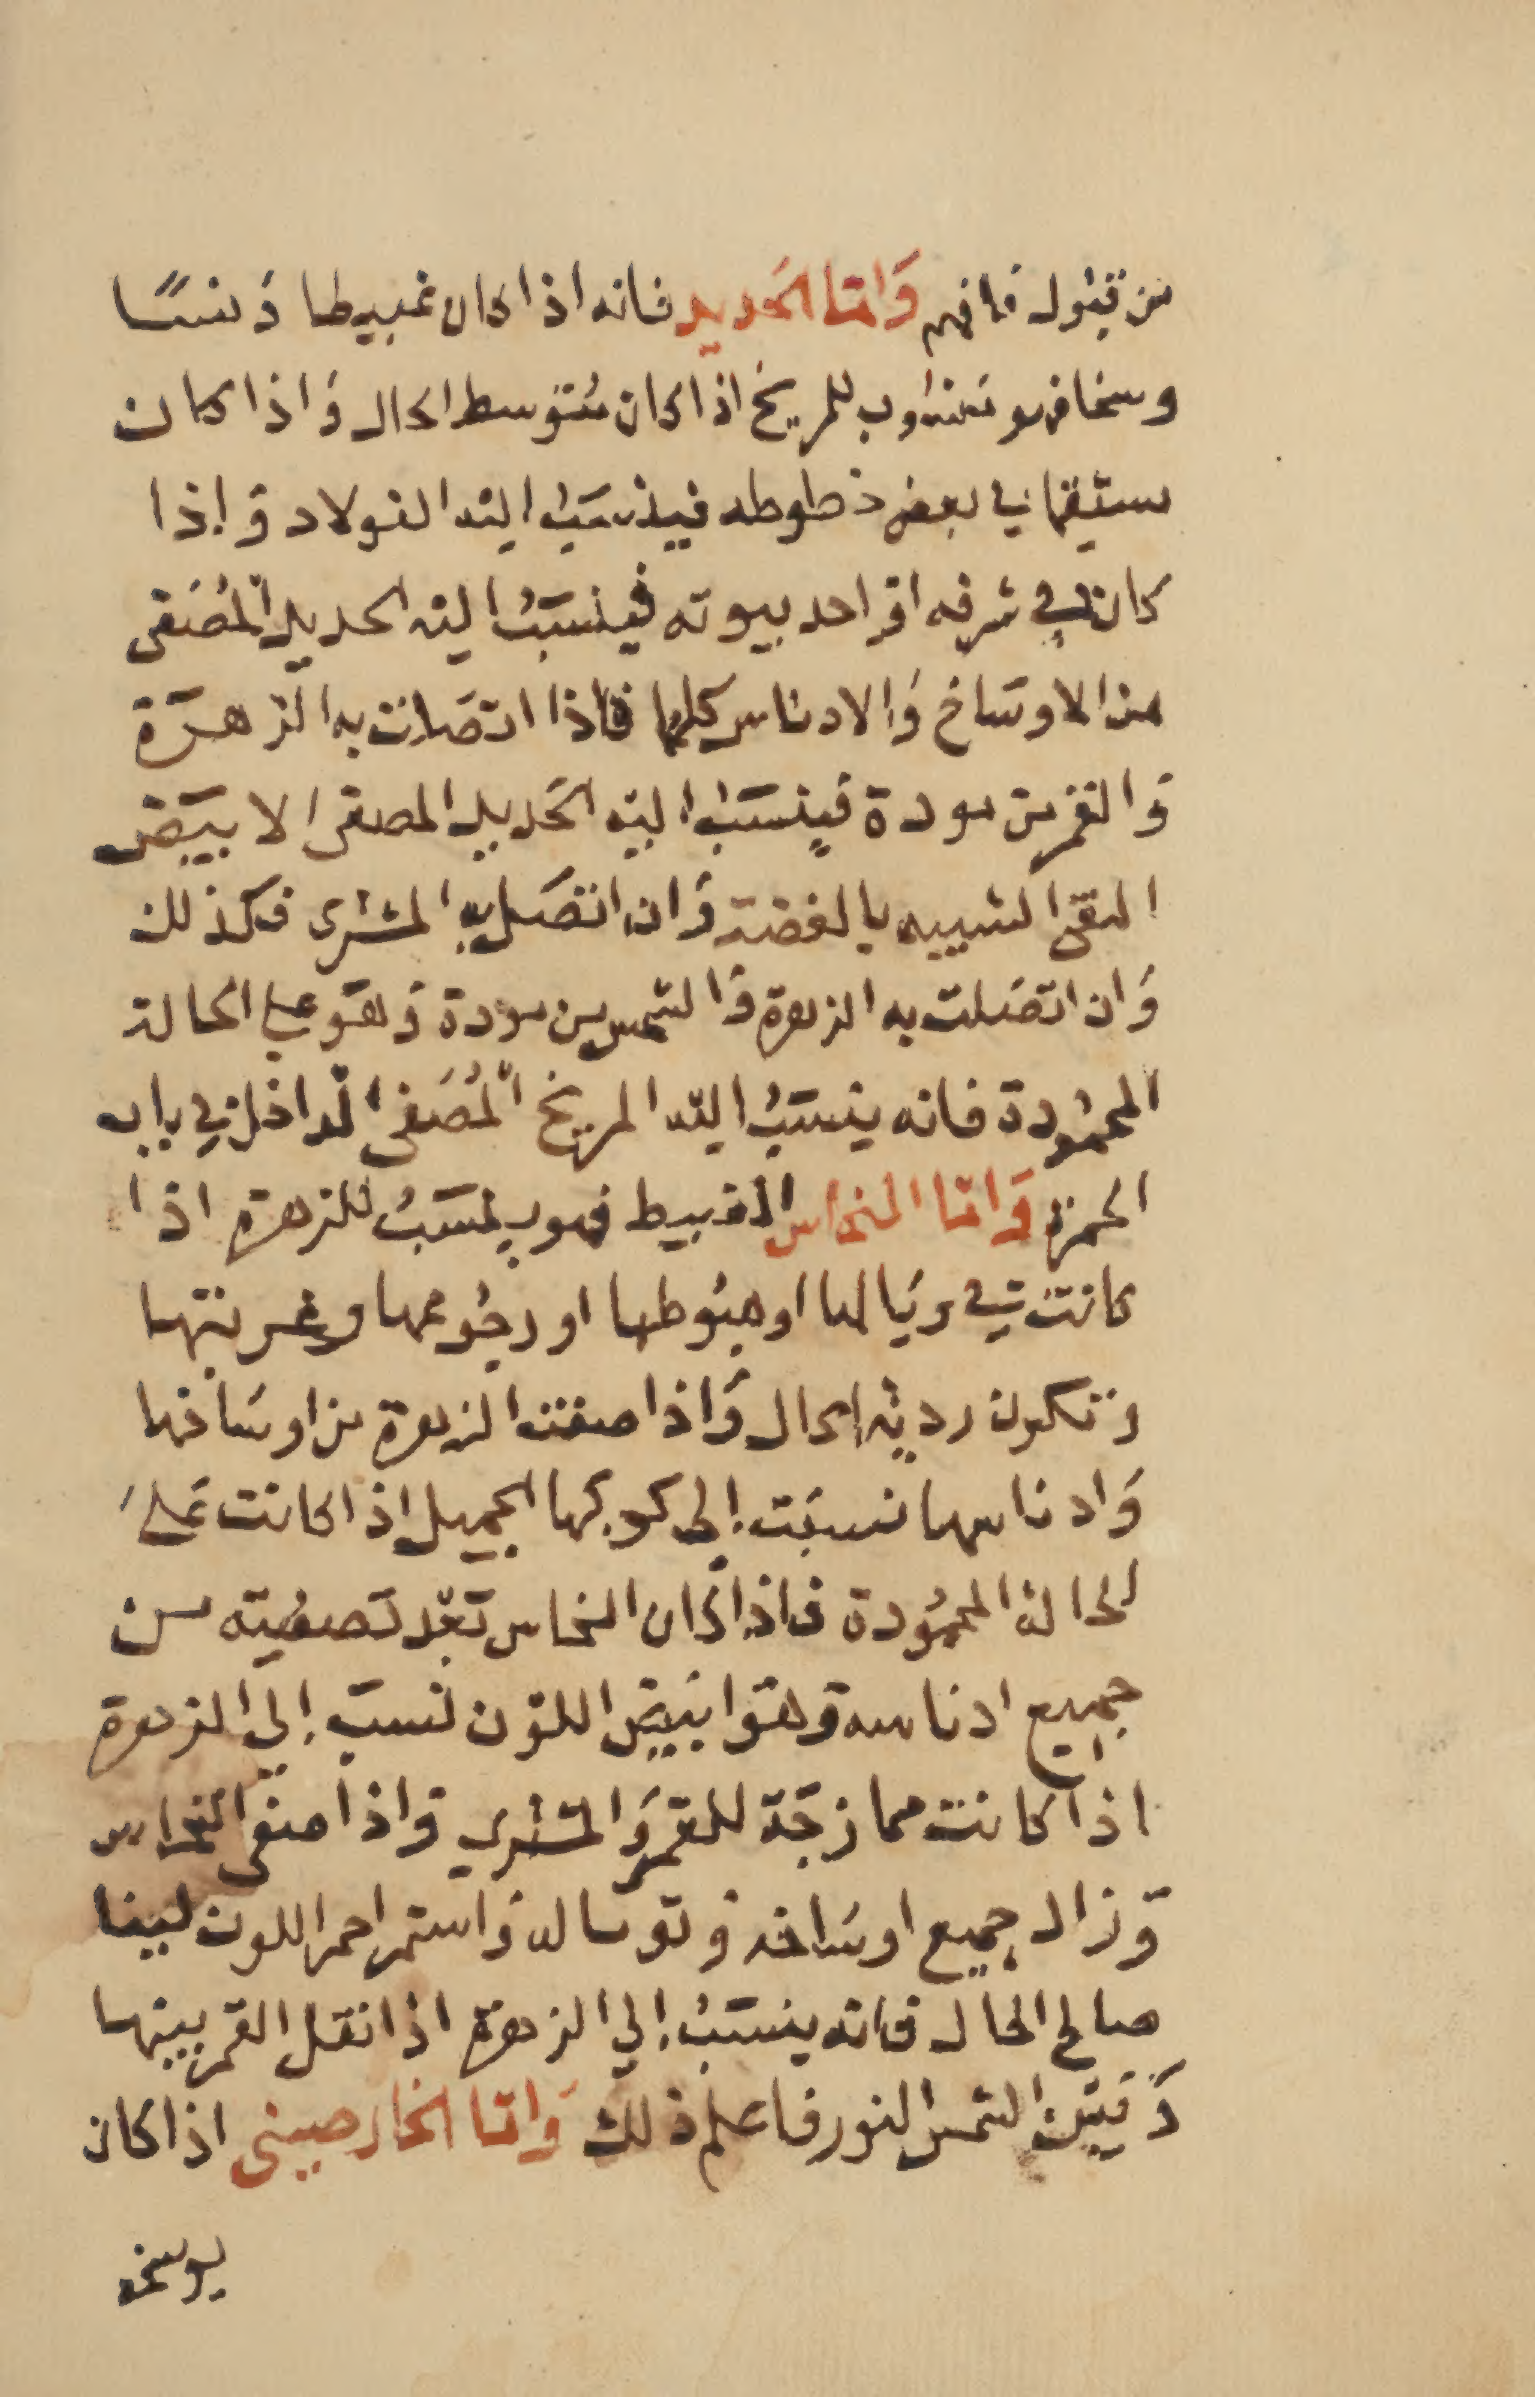 من قبول فافهم وَامّا الحَديد فانه اذا كان غبيطا دَنسًا
وسخا فهو منسوب للمريخ اذا كان مُتوسط الحال وَاذا كان
مستقيما في بعض خطوطه فينسَبُ اليه الفولاد وَاذا
كان في شرفه اوَ احد بيوته فينسَبُ اليه الحديد المُصَفى
من الاوسَاخ وَالادناس كلها فاذا اتصَلت به الزهرَة
وَالقمر من مودة فينسَبُ اليه الحَديد المصفى الابيَض
النقى الشبيه بالفضة وَان اتصَل به المشترى فكذلك
وَان اتصَلت به الزهرة وَالشمس من مودة وَهوَ على الحالة
المحمُودة فانه ينسَبُ اليه المريخ المُصَفى الداخل في باب
الحمرة وَامّا النحاس الغبيط فهو ينسَبُ للزهرة اذا
كانت في وبَالها او هبُوطها او رجُوعها وغربتها
وتكون رديئه الحال وَاذا صفت الزهرة من اوسَاخها
وَادناسها نسبَت إلى كوكبها الجميل اذا كانت عَلى
الحالة المحمُودة فاذا كان النحاس بَعْد تصفيته من
جميع ادناسه وَهوَ ابيَض اللون نسبَ إلى الزهرة
اذا كانت ممازجَة للقمر وَالمشتري وَاذا صفى النحاس
وَزال جميع اوسَاخه وتوساله وَاستمر احمر اللون لينا
صالح الحال فانه ينسَبُ إلى الزهرة اذا نقل القمر بينها
وَبَين الشمس النور فاعلم ذلك وَامّا الخارصينى اذا كان
بوسخه